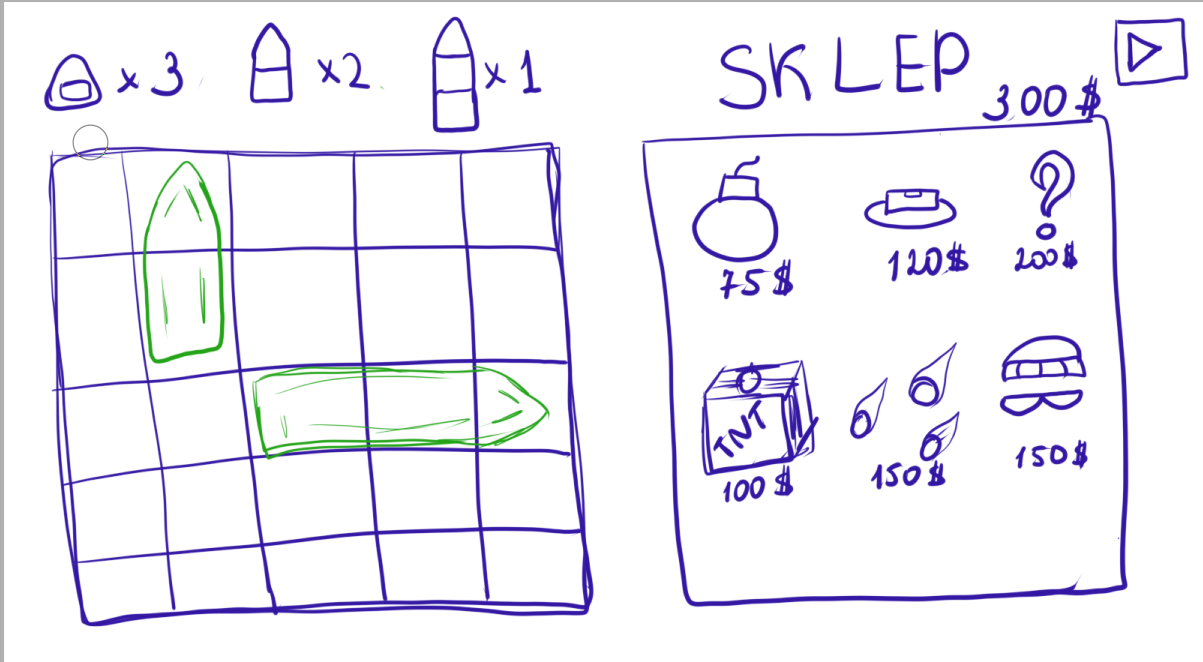 x 3
x2
x 1
SKLEP
300$
?
75$
120$
200$
TNT
100$
150$
150$